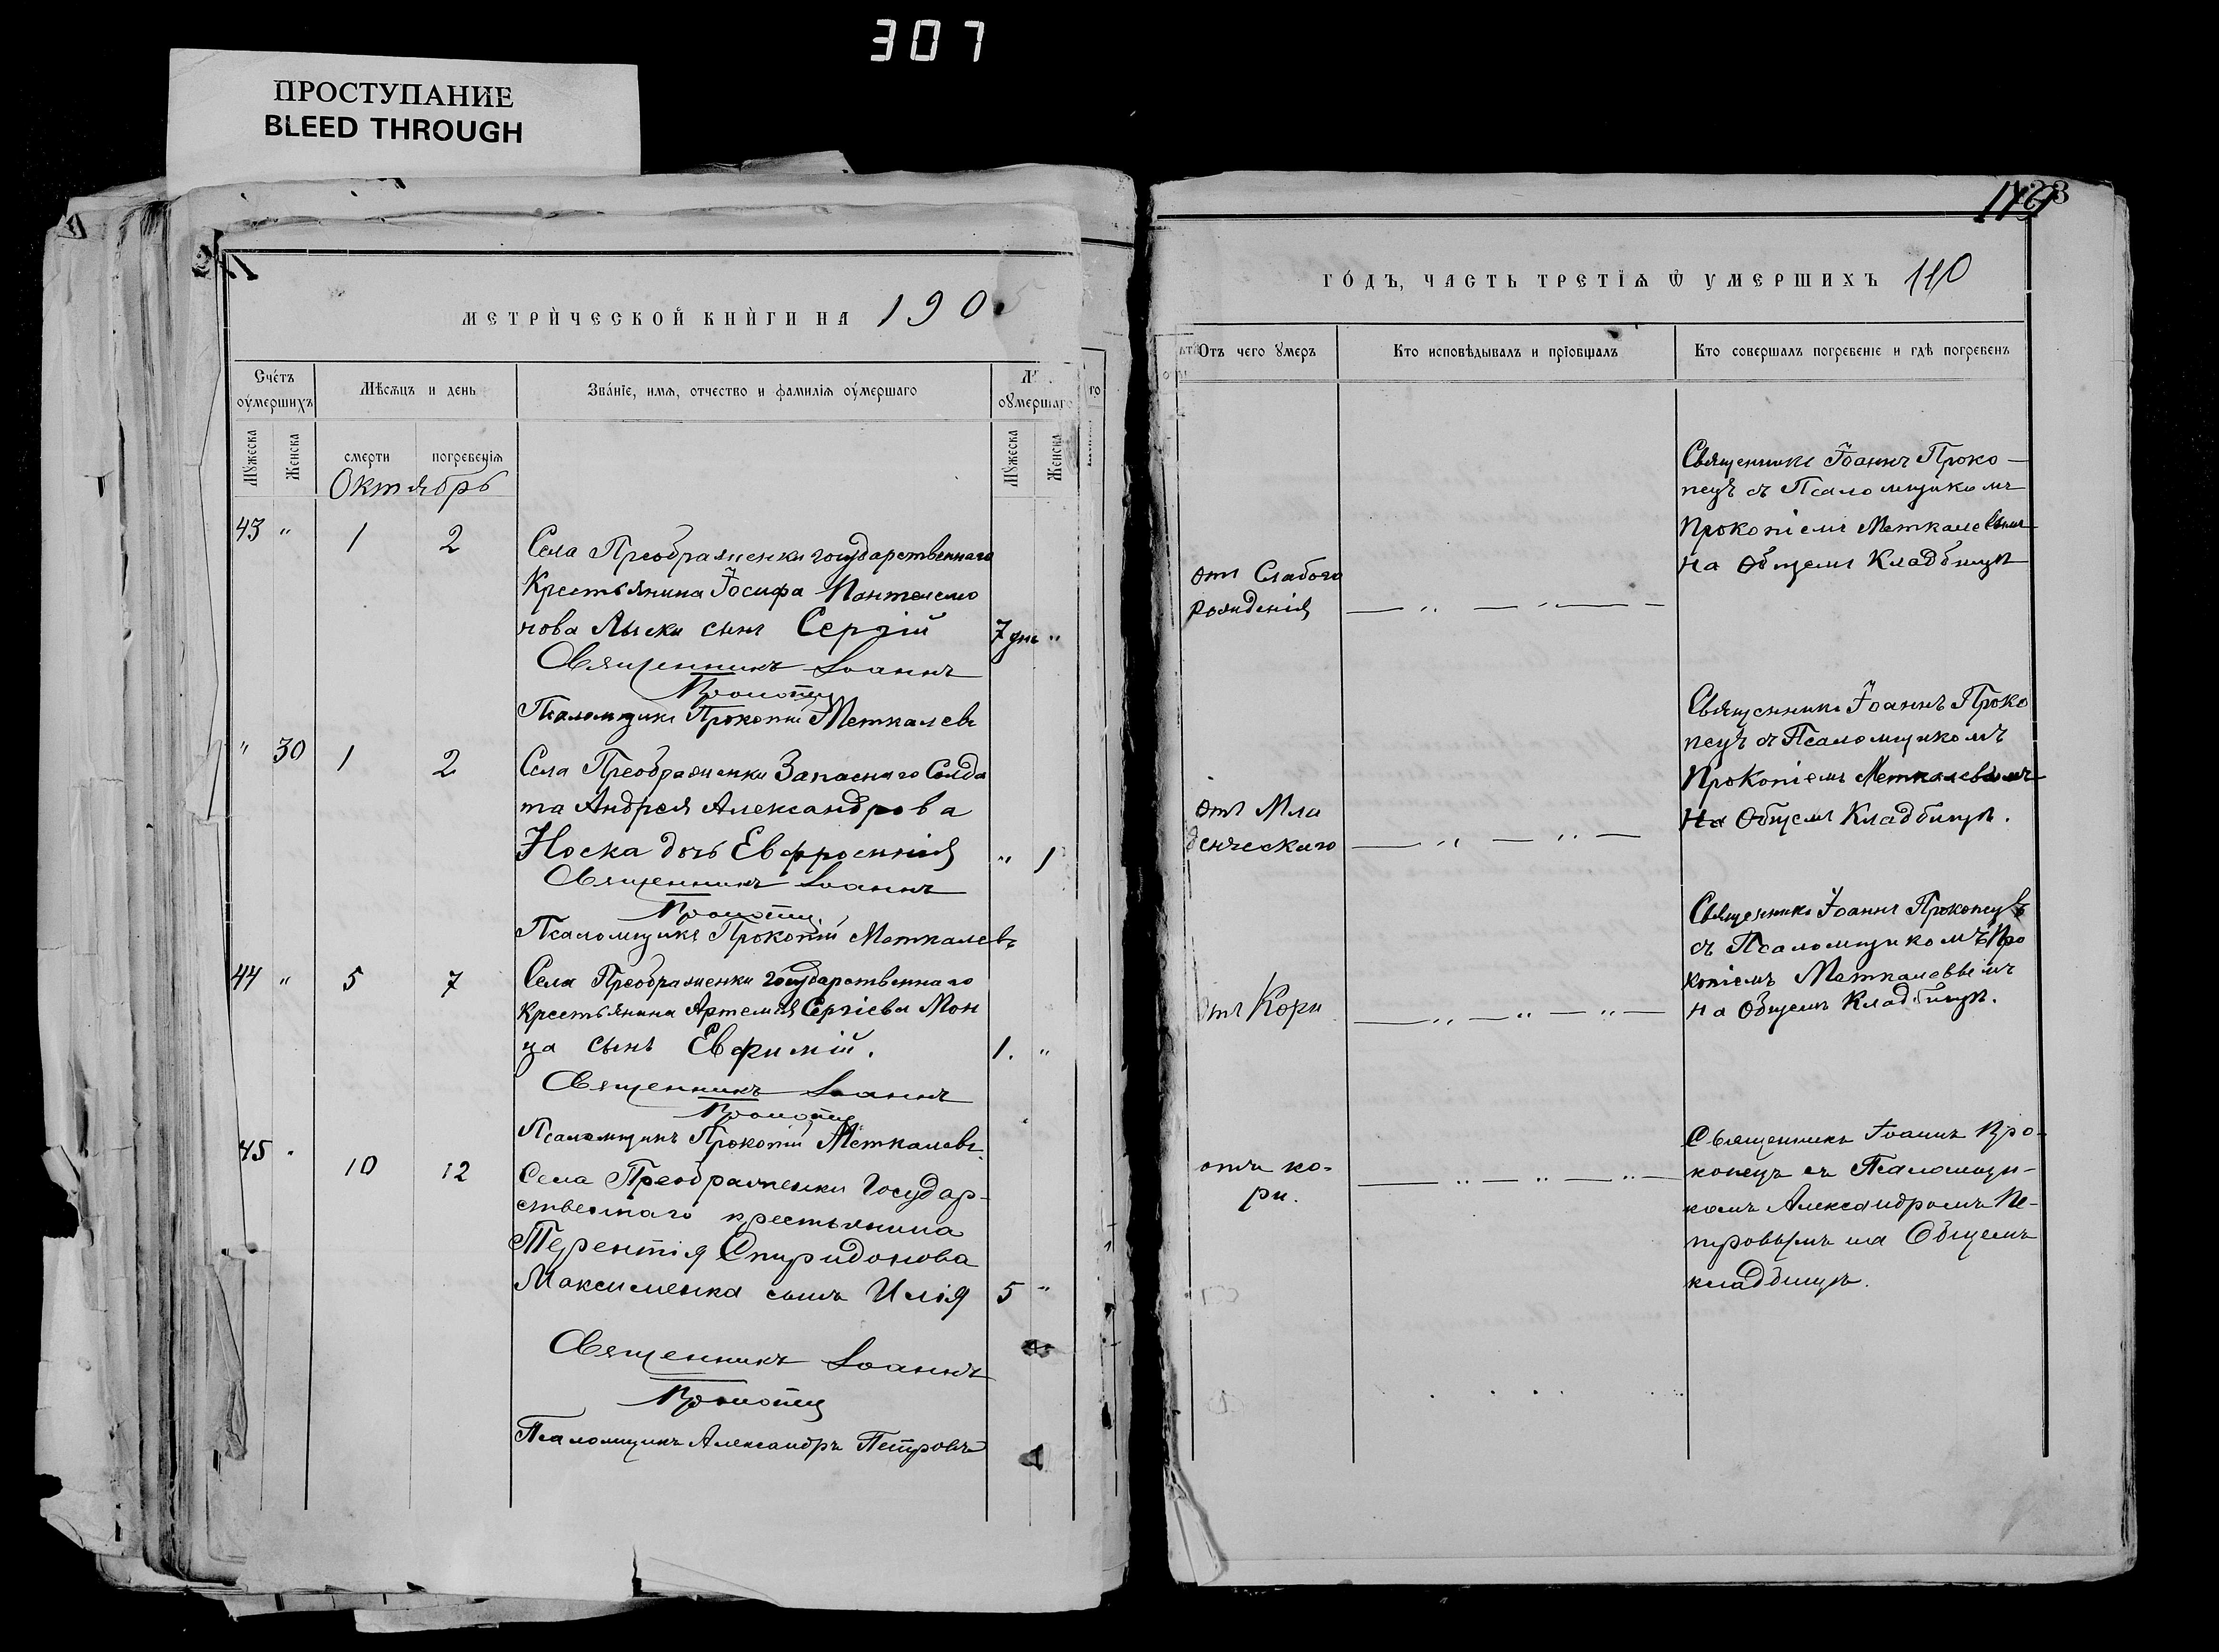 307
ПРОСТУПАНИЕ
BLEED THROUGH
МЕТРИ́ЧЕСКОЙ КНИ́ГИ НА 1905
Сче́тъ оу́мершихъ
Мѣсяцъ и день
Зва́нїе, имя, отчество и фамилїя оу́мершаго
оу́мершаго
Мꙋжеска
Женска
смерти
погребенїя
Мꙋжеска
Женска
Октябрь
43 " 1 2
Села Преображенки государственнаго
Крестьянина Іосифа Пантелемо
нова Лыски сынъ Сергій 7 дн "
Священникъ Іоаннъ
Прокопец
Псаломщикъ Прокопій Меткалевъ
" 30 1 2
Села Преображенки Запаснаго Солда
та Андрея Александрова
Носка дочь Евфросинія " 1
Священникъ Іоаннъ
Прокопец
Псаломщикъ Прокопій Меткалевъ
44 " 5 7
Села Преображенки государственнаго
крестьянина Артемія Сергіева Мон
ца сынъ Евфимій. 1. "
Священникъ Іоаннъ
Прокопец
Псаломщикъ Прокопій Меткалевъ
45 " 10 12
Села Преображенки Государ-
ственнаго крестьянина
Терентія Спиридонова
Максименка сынъ Илія 5 "
Священникъ Іоаннъ
Прокопец
Псаломщикъ Александръ Петровъ
ГО́ДЪ, ЧАСТЬ ТРЕТЇЯ Ѡ УМЕРШИХЪ 110
Отъ чего ꙋмеръ
Кто исповѣдывалъ и прїобщалъ
Кто совершалъ погребенїе и гдѣ погребенъ
отъ Слабого
рожденія
Священникъ Іоаннъ Проко-
пецъ съ Псаломщикомъ
Прокопіемъ Меткалевымъ
на Общемъ Кладбищѣ
отъ Мла
денческаго
Священникъ Іоаннъ Проко
пецъ съ Псаломщикомъ
Прокопіемъ Меткалевымъ
На Общемъ Кладбищѣ.
Отъ Кори
Священникъ Іоаннъ Прокопецъ
съ Псаломщикомъ Про
копіемъ Меткалевымъ
на Общемъ Кладбищѣ.
отъ ко-
ри.
Священникъ Іоаннъ Про-
копецъ съ Псаломщи-
комъ Александромъ Пе-
тровымъ на Общемъ
кладбищѣ.